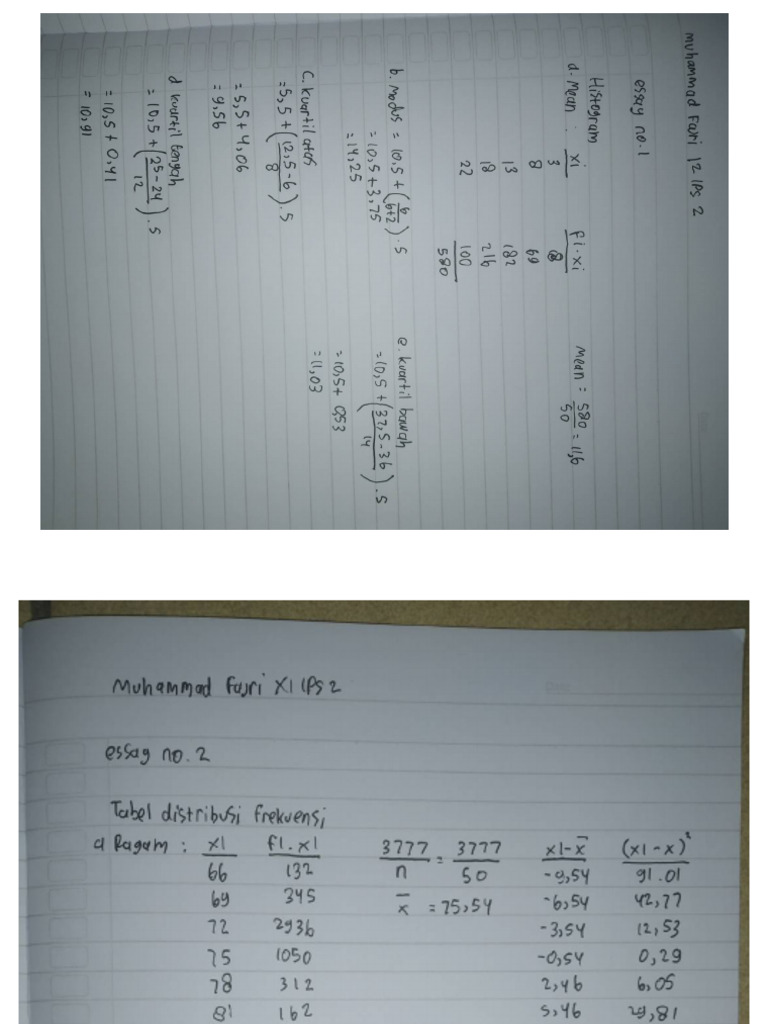 muhammad Fajri 12 IPS 2
essay no.1
Histogram
a. Mean : xi fi.xi
3 8
8 69
13 182
18 216
22 100
580
Mean = 580/50 = 11,6
b. Modus = 10,5 + (6/6+2) . 5
= 10,5 + 3,75
= 14,25
C. kuartil atas
= 5,5 + (12,5-6/8) . 5
= 5,5 + 4,06
= 9,56
d kuartil tengah
= 10,5 + (25-24/12) . 5
= 10,5 + 0,41
= 10,91
e. kuartil bawah
= 10,5 + (37,5-36/14) . 5
= 10,5 + 0,53
= 11,03
Muhammad Fajri XI IPS 2
essay no. 2
Tabel distribusi frekuensi
a Ragam : x1 f1.x1 3777/n = 3777/50 x1-x̄ (x1-x)²
66 132 -9,54 91.01
69 345 x̄ = 75,54 -6,54 42,77
72 2936 -3,54 12,53
75 1050 -0,54 0,29
78 312 2,46 6,05
81 162 5,46 29,81